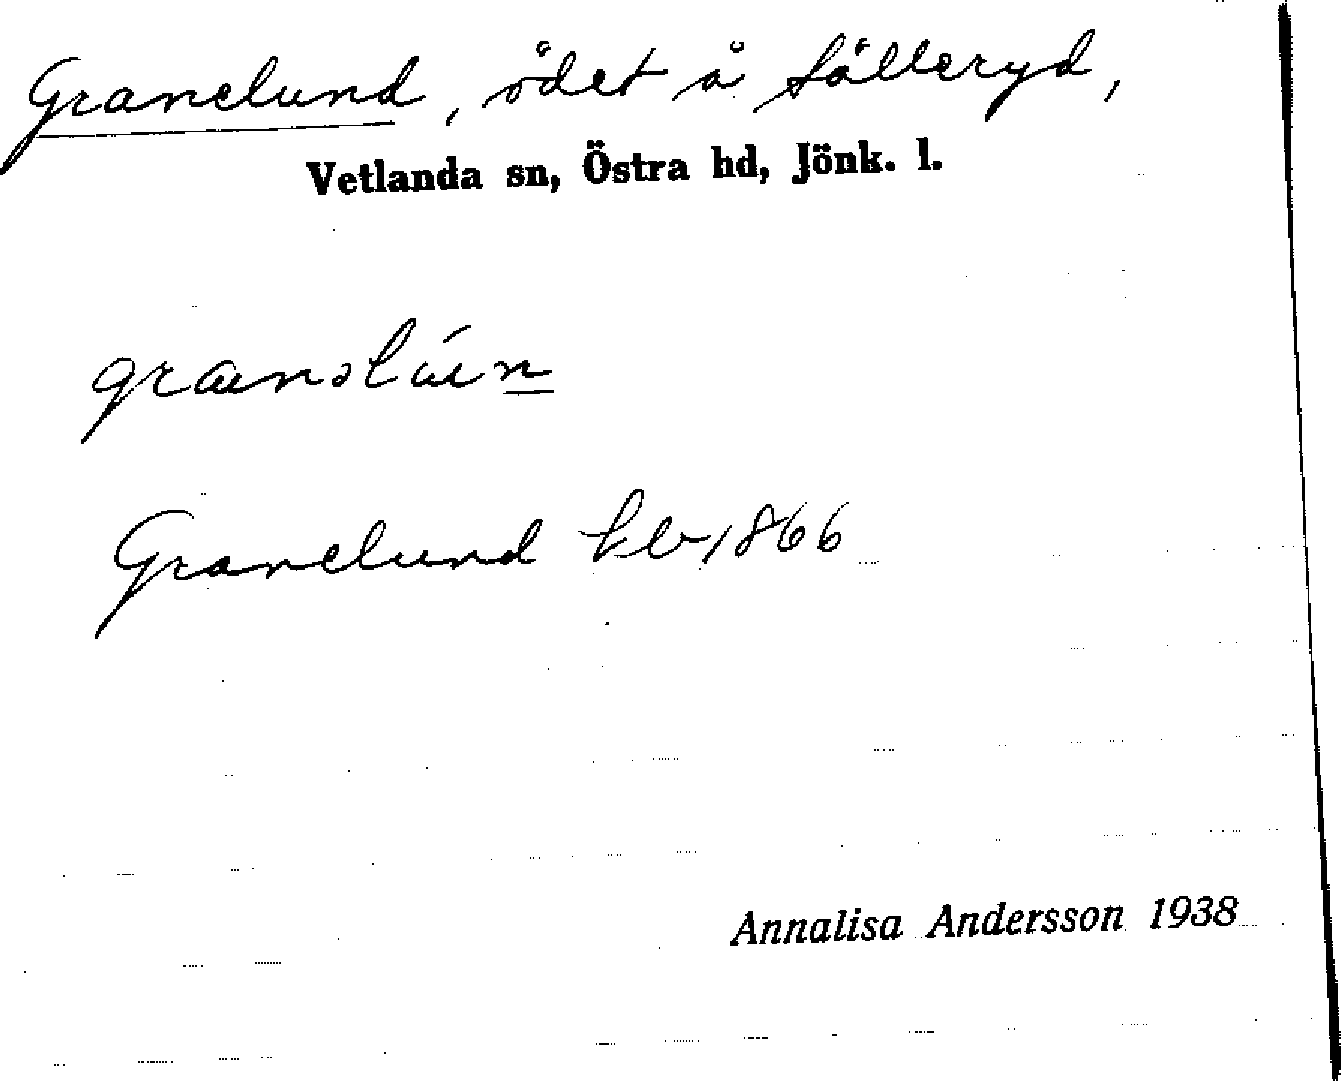 Granelund, ödet å Sälleryd,
Vetlanda sn, Östra hd, Jönk. l.
Granelund kb 1866
Annalisa Andersson 1938